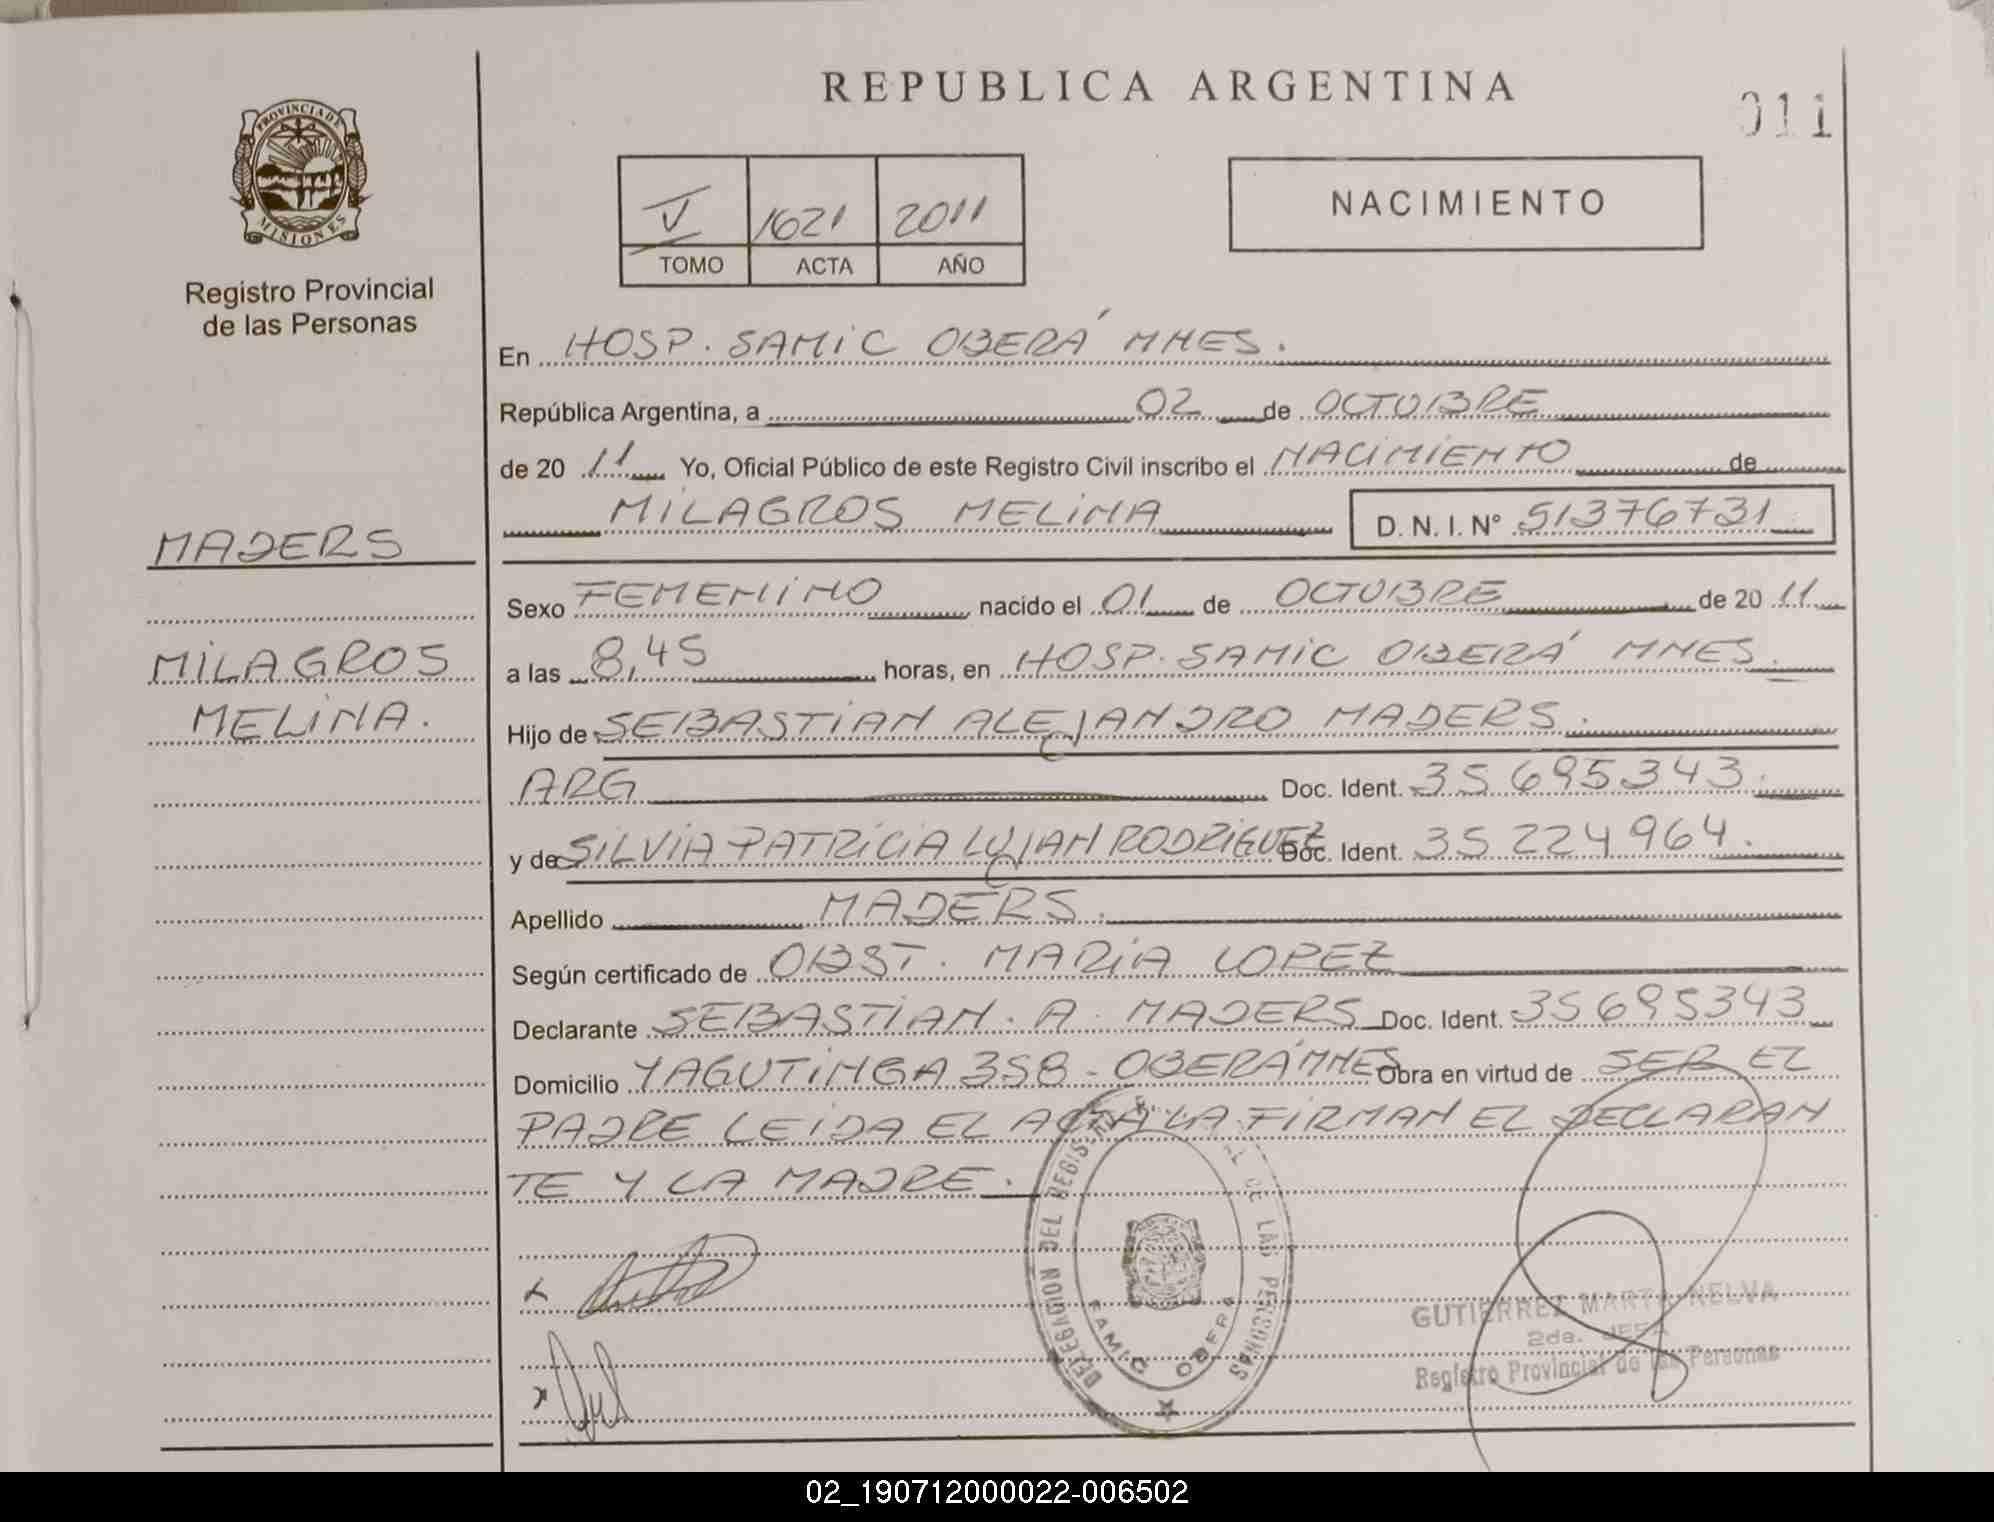 REPUBLICA ARGENTINA
011
PROVINCIA DE
MISIONES
Registro Provincial
de las Personas
V 1621 2011
TOMO ACTA AÑO
NACIMIENTO
En HOSP. SAMIC OBERÁ MNES.
República Argentina, a 02 de OCTUBRE
de 20 11 Yo, Oficial Público de este Registro Civil inscribo el NACIMIENTO de
MILAGROS MELINA D. N. I. N° 51376731
MADERS
MILAGROS
MELINA.
Sexo FEMENINO nacido el 01 de OCTUBRE de 20 11
a las 8,45 horas, en HOSP. SAMIC OBERÁ MNES.
Hijo de SEBASTIAN ALEJANDRO MADERS.
ARG Doc. Ident. 35695343.
y de SILVIA PATRICIA LUJAN RODRIGUEZ Doc. Ident. 35224964.
Apellido MADERS.
Según certificado de OBST. MARIA LOPEZ
Declarante SEBASTIAN. A. MADERS Doc. Ident. 35695343
Domicilio YAGUTINGA 358 - OBERÁ MNES Obra en virtud de SER EL
PADRE LEIDA EL ACTA LA FIRMAN EL DECLARAN
TE Y LA MADRE.
DELEGACION DEL REGISTRO DE LAS PERSONAS
OBERA
GUTIERREZ MARTA NELVA
2da. JEFA
Registro Provincial de las Personas
02_190712000022-006502